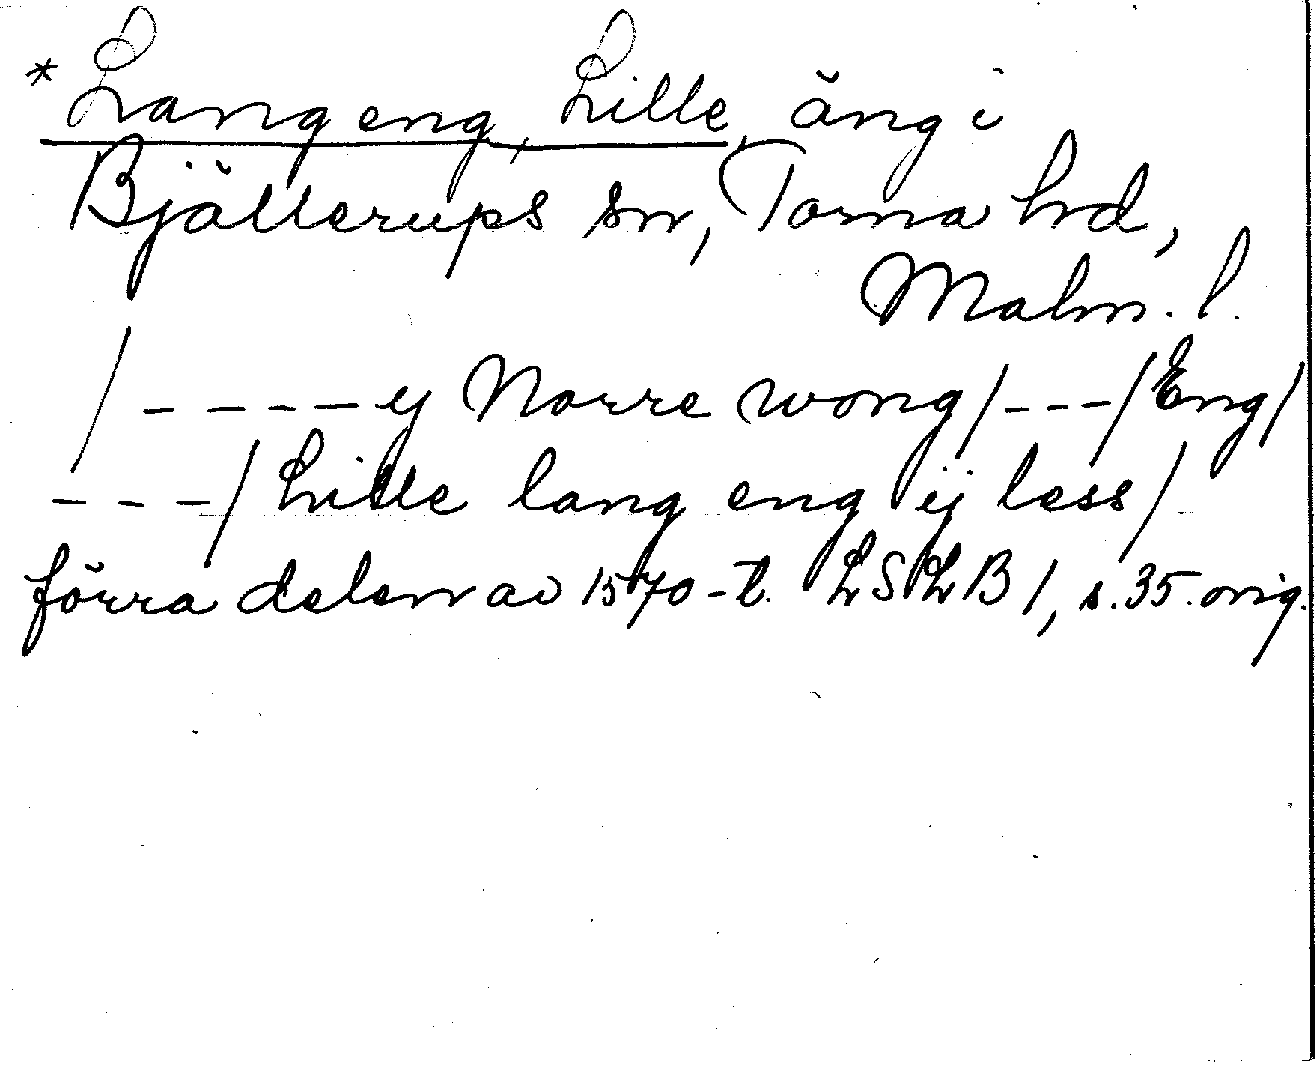 *Langeng, Lille, äng i
Bjällerups sn, Torna hd,
Malm. l.
/ ---- y Norre wong/---/Eng/
---/Lille lang eng ij less/
förra delen av 1570-t. LSLB 1, s. 35. orig.